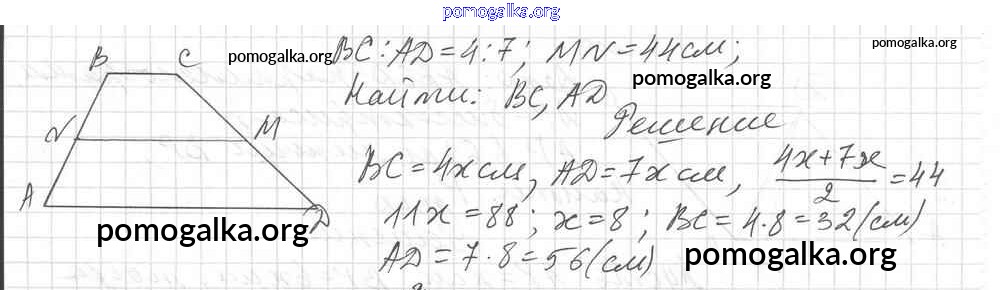 pomogalka.org
pomogalka.org
pomogalka.org
BC : AD = 4 : 7 ; MN = 44 см ;
pomogalka.org
Найти: BC, AD
Решение
BC = 4x см, AD = 7x см, (4x + 7x)/2 = 44
11x = 88 ; x = 8 ; BC = 4 · 8 = 32 (см)
AD = 7 · 8 = 56 (см)
pomogalka.org
pomogalka.org
B
C
N
M
A
D